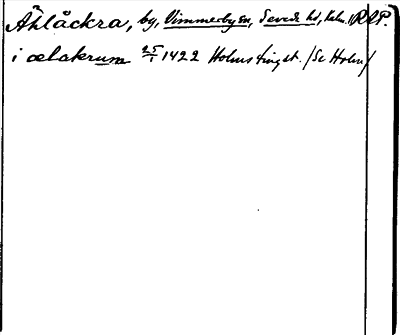 Åhlåckra, by, Vimmerby sn, Sevede hd, Kalm. l. RAP.
i ælakrum 25/1 1422 Holms tingst. /Se Holm/